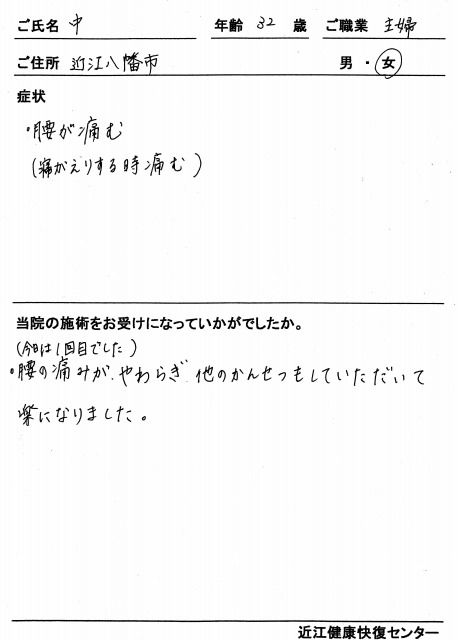 ご氏名 中 年齢 32 歳 ご職業 主婦
ご住所 近江八幡市 男・女
症状
・腰が痛む
(寝がえりする時痛む)
当院の施術をお受けになっていかがでしたか。
(今日は1回目でした)
・腰の痛みが、やわらぎ 他のかんせつもしていただいて
楽になりました。
近江健康快復センター